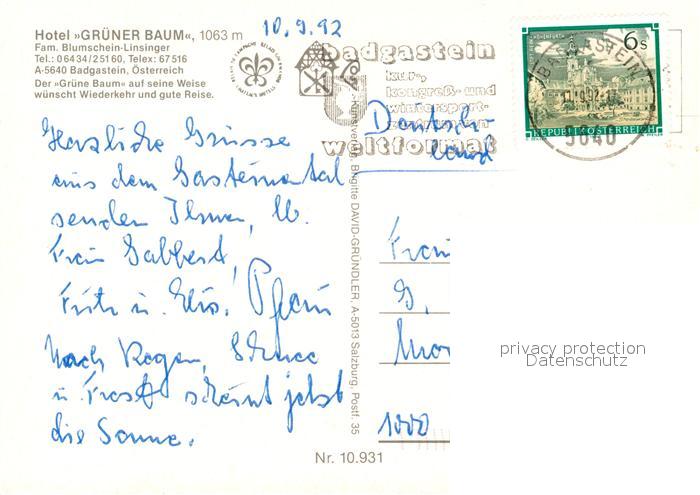 Hotel »GRÜNER BAUM«, 1063 m
Fam. Blumschein-Linsinger
Tel.: 06434/25160, Telex: 67516
A-5640 Badgastein, Österreich
Der »Grüne Baum« auf seine Weise
wünscht Wiederkehr und gute Reise.
10.9.92
badgastein
kur-,
kongreß- und
wintersport-
weltformat
6s
REPUBLIK ÖSTERREICH
BADGASTEIN
5640
Deutsch-
land
Herzliche Grüsse
aus dem Gasteinertal
senden Ihnen, lb.
Frau Gabbert,
Fritz u. Elis. Pfau
Nach Regen, Schnee
u. Frost scheint jetzt
die Sonne.
Kunstverlag Brigitte DAVID-GRÜNDLER, A-5013 Salzburg, Postf. 35
Frau
G.
1000
Nr. 10.931
privacy protection
Datenschutz